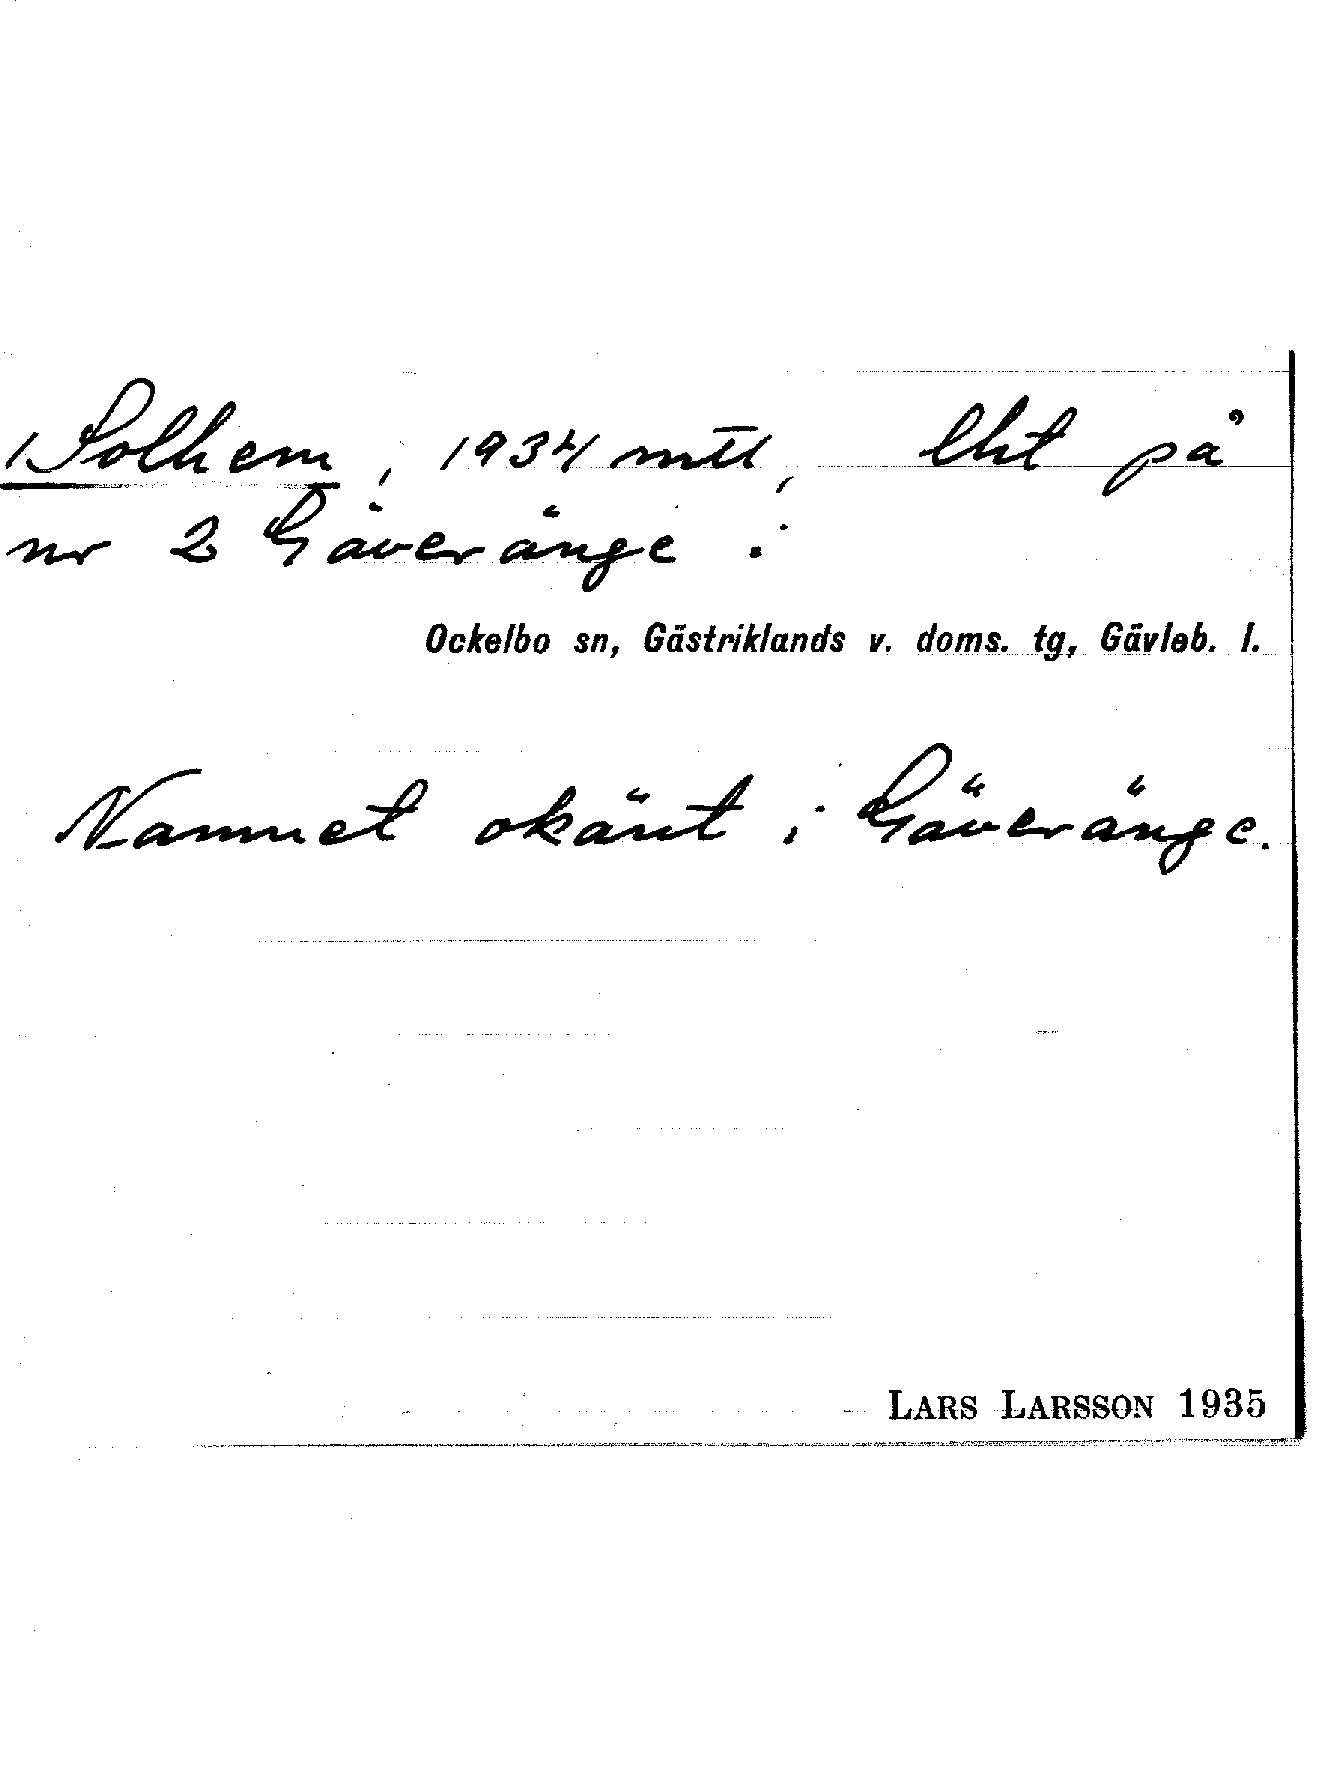 1 Solhem, 1934 mtl, lht på
nr 2 Gäveränge i
Ockelbo sn, Gästriklands v. doms. tg, Gävleb. l.
Namnet okänt i Gäveränge.
LARS LARSSON 1935